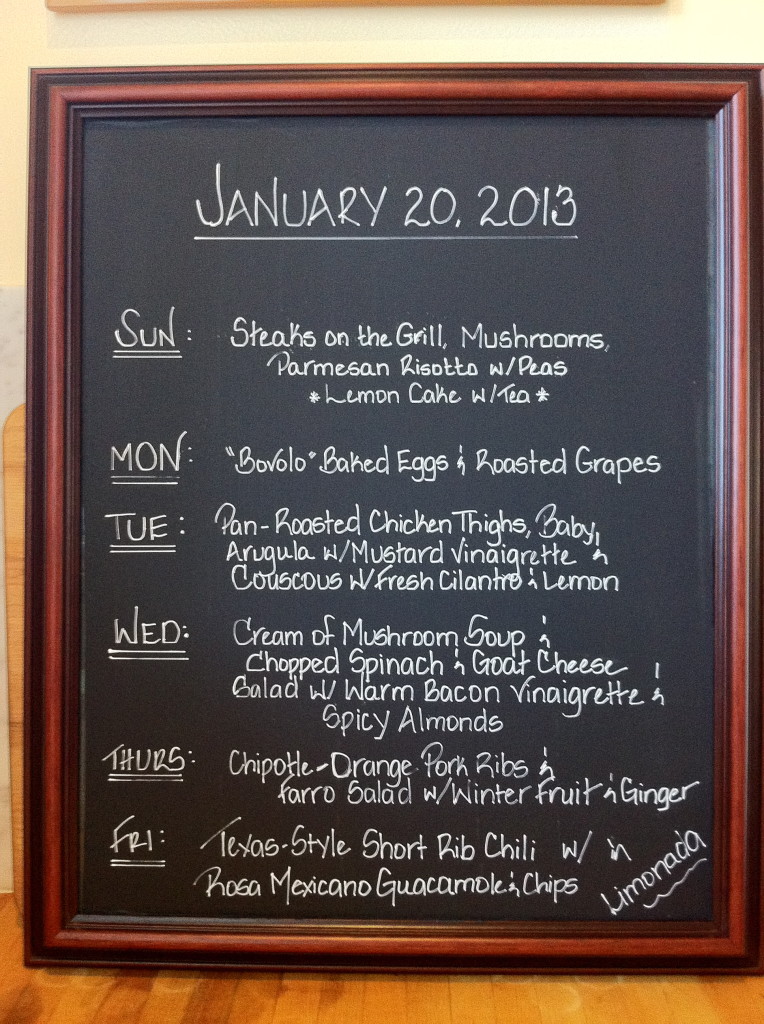 JANUARY 20, 2013
SUN: Steaks on the Grill, Mushrooms,
Parmesan Risotto w/Peas
*Lemon Cake w/Tea*
MON: "Bovolo" Baked Eggs & Roasted Grapes
TUE: Pan-Roasted Chicken Thighs, Baby
Arugula w/Mustard Vinaigrette &
Couscous w/Fresh Cilantro & Lemon
WED: Cream of Mushroom Soup &
Chopped Spinach & Goat Cheese
Salad w/ Warm Bacon Vinaigrette &
Spicy Almonds
THURS: Chipotle-Orange Pork Ribs &
Farro Salad w/Winter Fruit & Ginger
FRI: Texas-Style Short Rib Chili w/
Rosa Mexicano Guacamole & Chips
Limonada